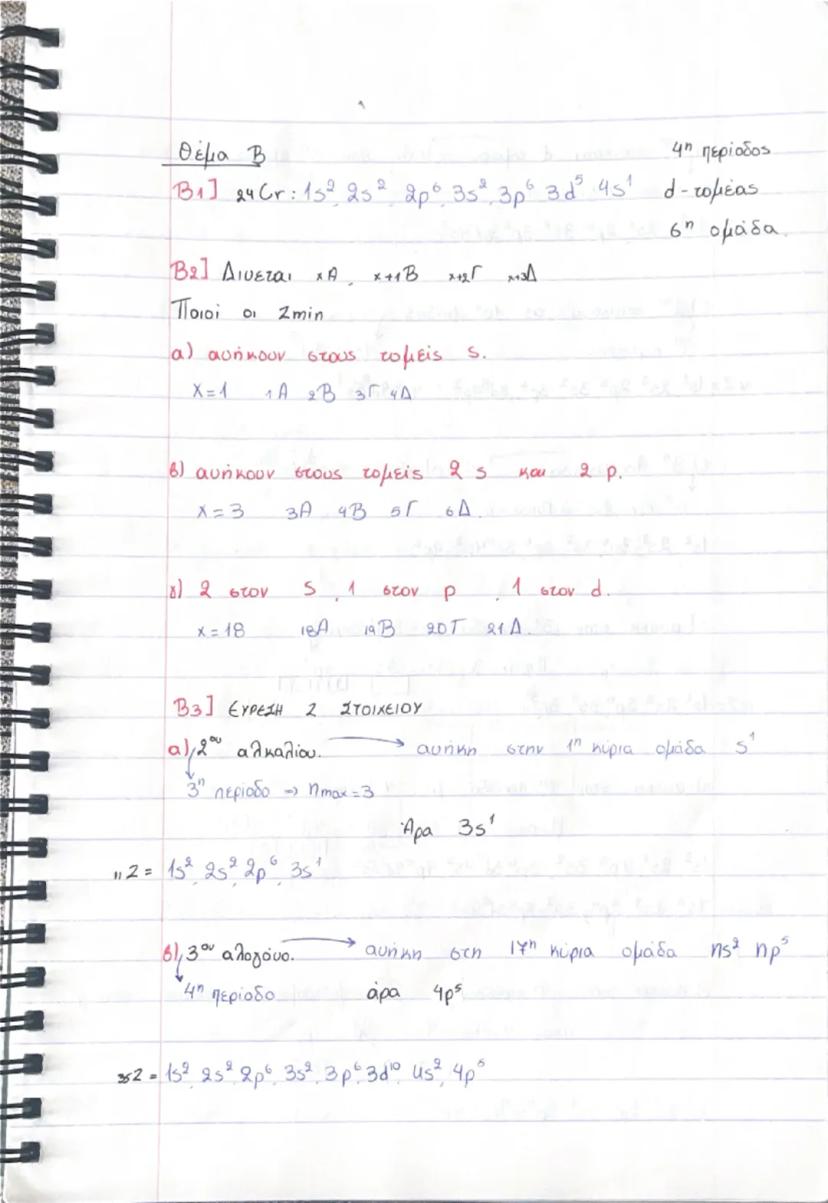 Θέμα Β
4η περίοδος
Β1] 24Cr: 1s², 2s², 2p⁶, 3s², 3p⁶, 3d⁵, 4s¹ d-τομέας
6η ομάδα.
Β2] Δινεται xA, x+1B x+2Γ x+3Δ
Ποιοί οι Zmin
α) ανήκουν στους τομείς s.
x=1 1A 2B 3Γ 4Δ
β) ανήκουν στους τομείς 2 s και 2 p.
x=3 3A 4B 5Γ 6Δ.
γ) 2 στον s, 1 στον p, 1 στον d.
x=18 18A 19B 20Γ 21Δ.
Β3] ΕΥΡΕΣΗ Z ΣΤΟΙΧΕΙΟΥ
α) 2ου αλκαλίου. → ανήκη στην 1η κύρια ομάδα s¹
3η περίοδο ⇒ nmax=3
Άρα 3s¹
11Z = 1s², 2s², 2p⁶, 3s¹
β) 3ου αλογόνο. → ανήκη στη 17η κύρια ομάδα ns² np⁵
4η περίοδο άρα 4p⁵
35Z = 1s², 2s², 2p⁶, 3s², 3p⁶, 3d¹⁰, 4s², 4p⁵